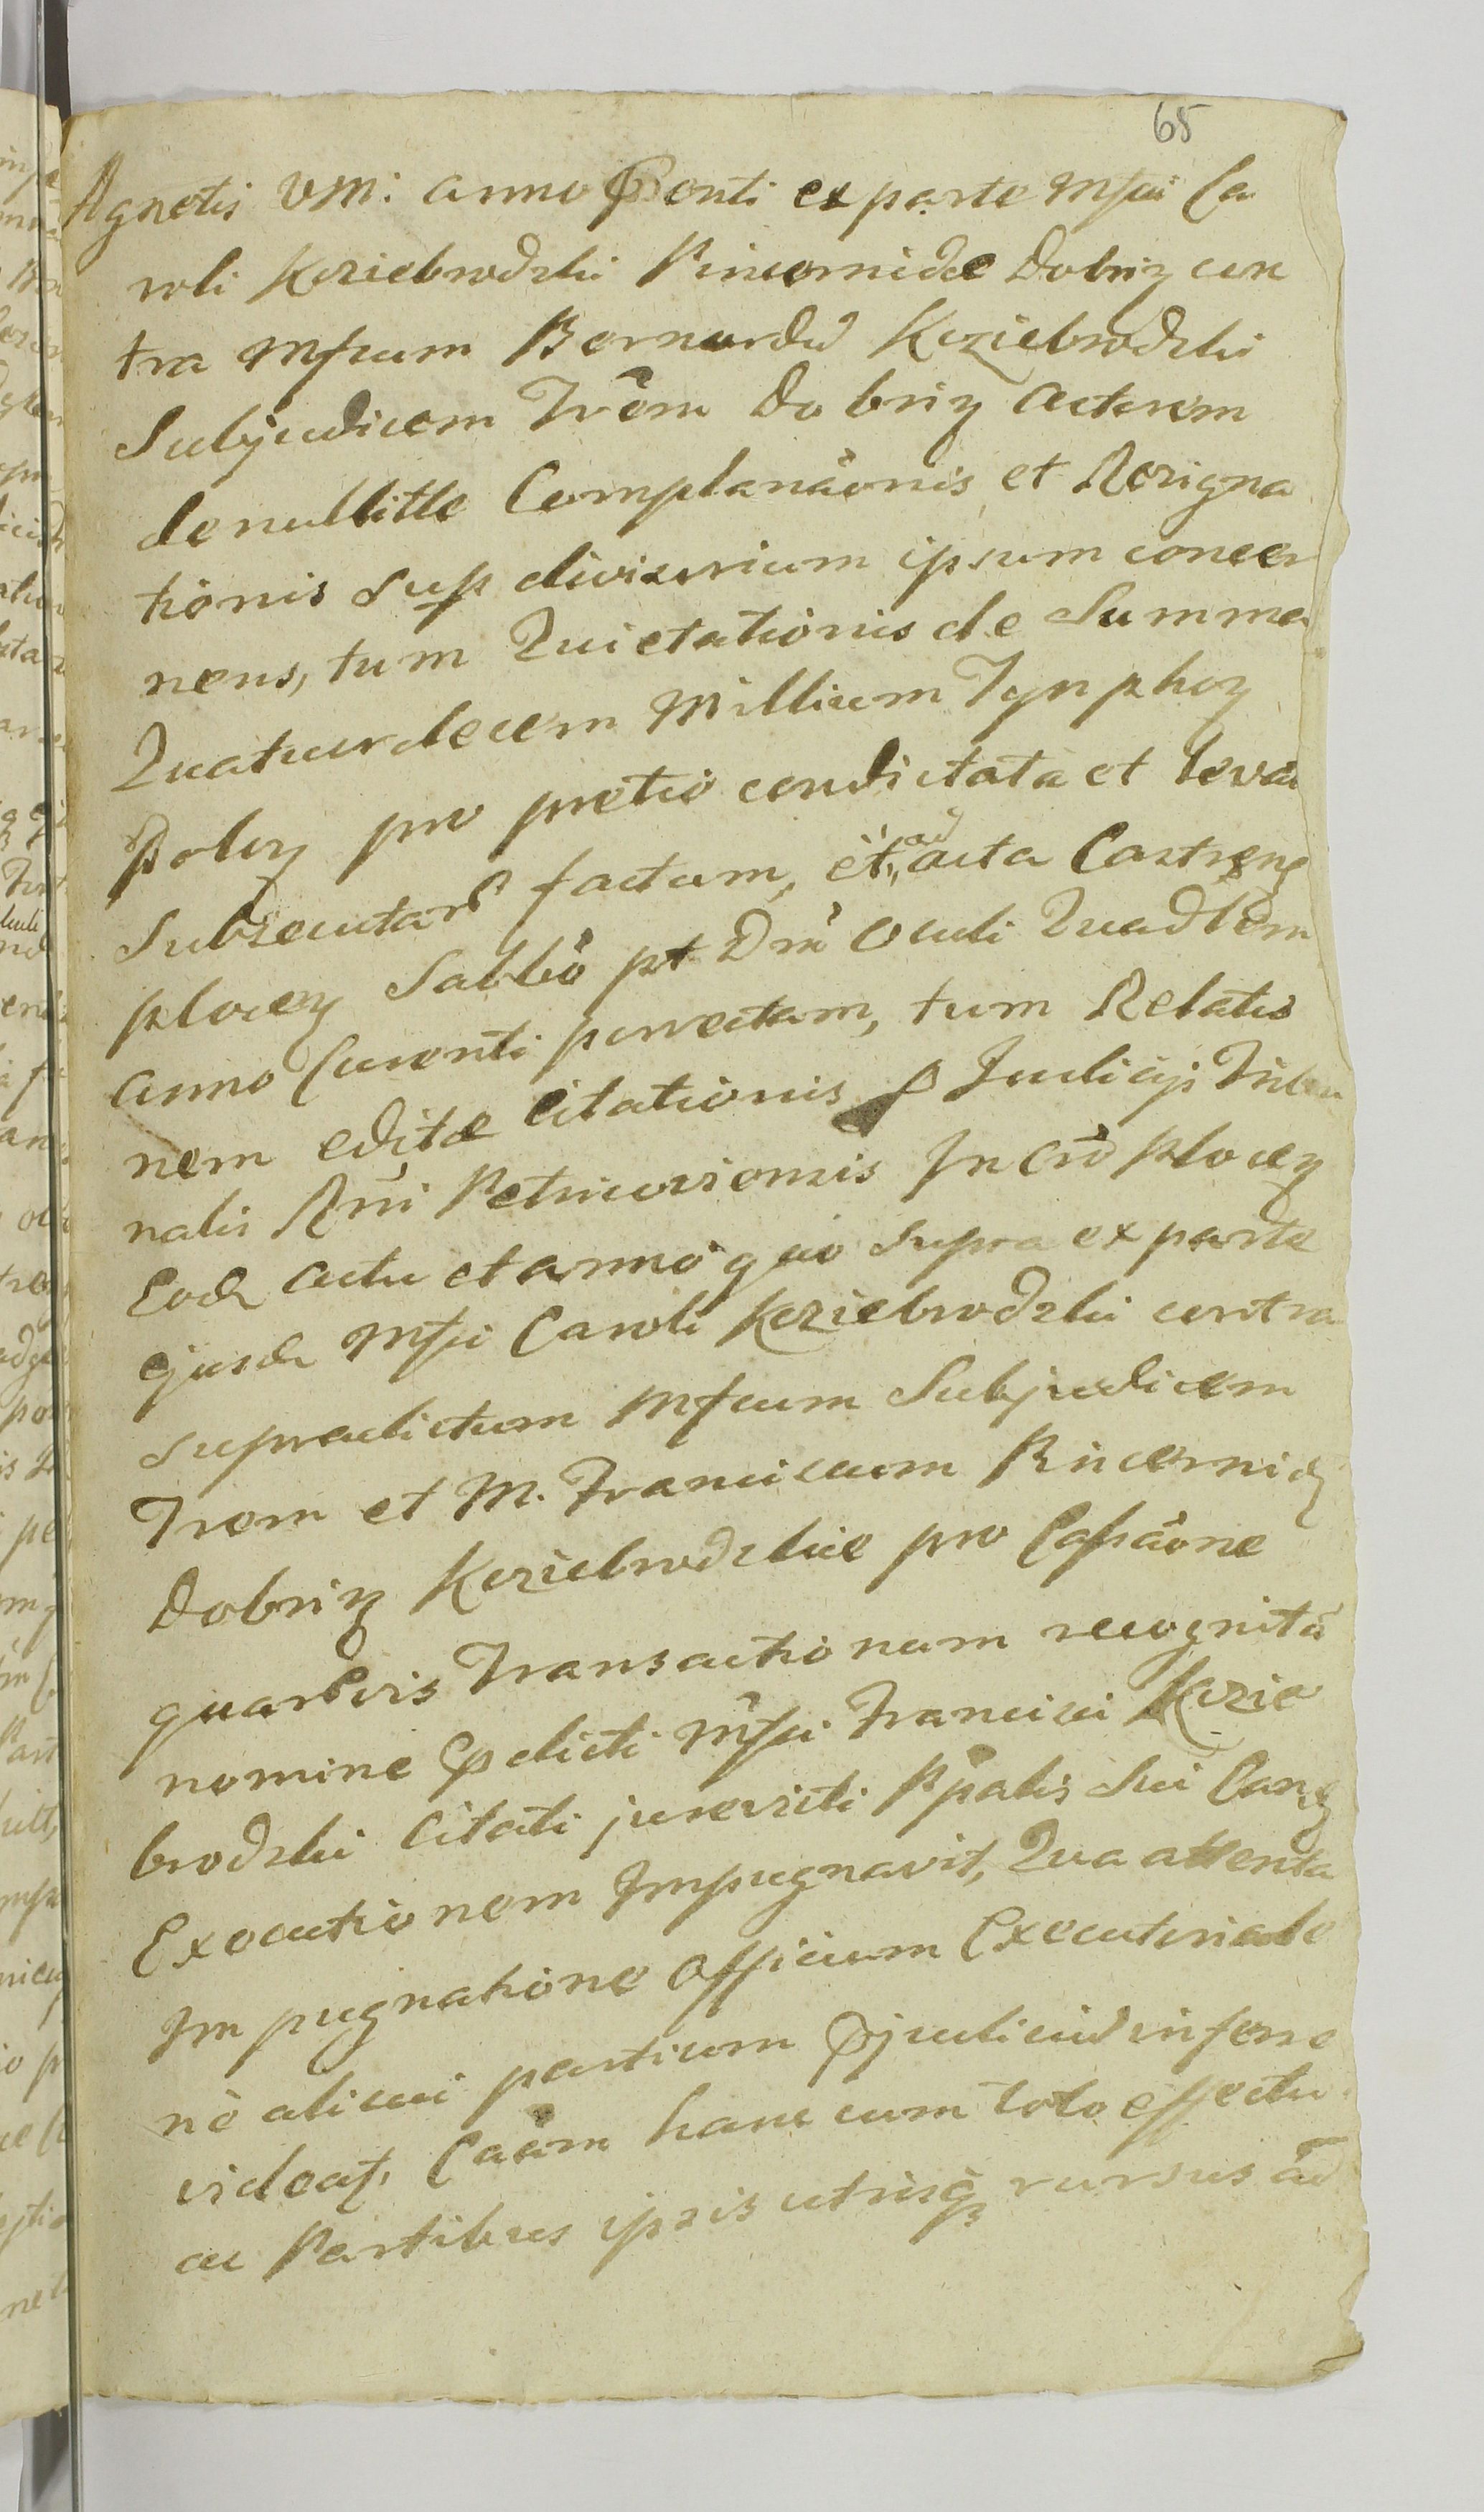 65
Agnetis VM: anno Pnti ex parte Mfici Ca
roli Kcziebrodzki Pincernidae Dobriz con
tra Mficum Bernardū Kcziebrodzki
Subjudicem Trēm Dobriz actorem
de nullitte Complanāonis et Resigna
tionis sup divisorium ipsum concer
nens, tum Quietationis de Summa
Quatuordecem Millium Tynphoȝ
Poloȝ pro pretio condictata et leva
Subsecutarȝ factam, et ad acta Castreng
plocen Sabbo pt Dm̄ Oculi Quadlem
anno Curenti porrectam, tum Relatio
nem editae Citationis p Judicÿ Tribu
nalis Rni Petricoviensis In Crō plocen
Eod actu et anno quo supra ex parte
ejusd Mfici Caroli Kcziebrodzki contra
supradictum Mficum Subjudicem
Trem et M. Franciscum Pincernid
Dobriz Kcziebrodzkie pro Cassāone
quarvis Transactionum recognita
nomine Pdicti Mfici Francisci Kczie
brodzki Citati jurevicti Ppalis sui Cang
Executionem Impugnavit, Qua attenta
Impugnatione Officium Executoriale
nè alicui partium Pjudiciū inferre
videat, Caām hanc cum toto effectu
ac Partibus ipsis utrisq rursus ad